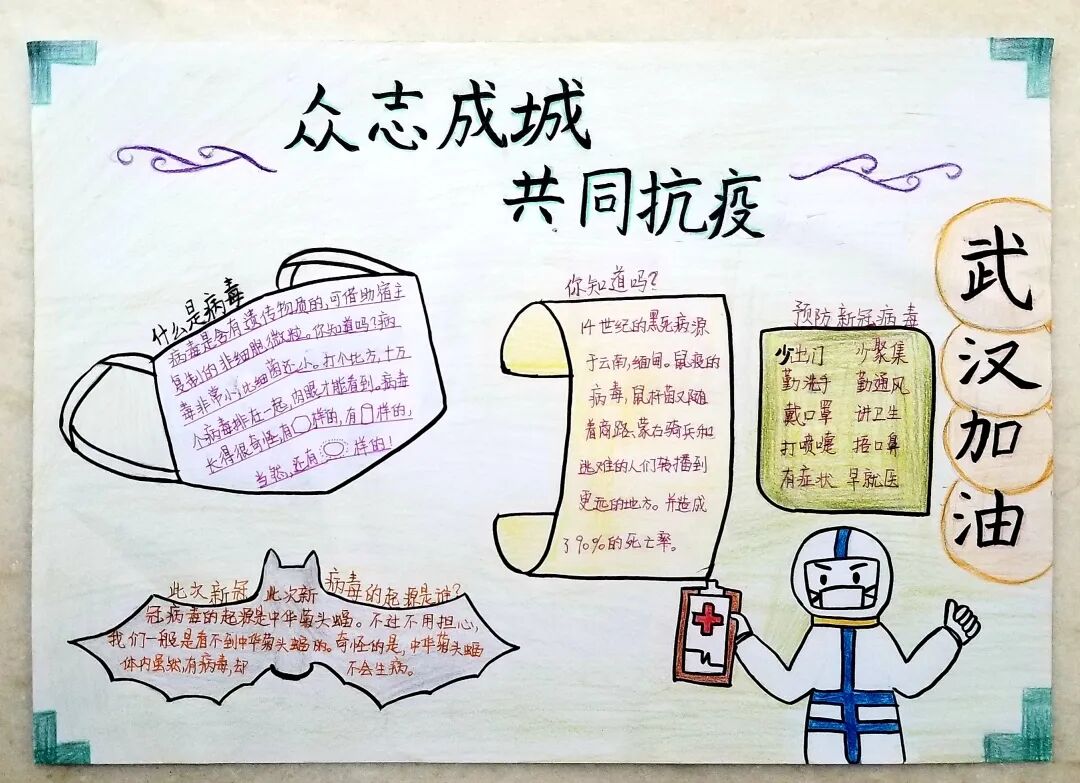 众志成城
共同抗疫
武汉加油
什么是病毒
病毒是含有遗传物质的,可借助宿主
复制的非细胞微粒。你知道吗?病
毒非常小,比细菌还小。打个比方,十万
个病毒排在一起,肉眼才能看到。病毒
长得很奇怪,有 样的,有 样的,
当然,还有 样的!
你知道吗?
14世纪的黑死病源
于云南,缅甸。鼠疫的
病毒,鼠杆菌又随
着商路、蒙古骑兵和
逃难的人们转播到
更远的地方。并造成
了90%的死亡率。
预防新冠病毒
少出门 少聚集
勤洗手 勤通风
戴口罩 讲卫生
打喷嚏 捂口鼻
有症状 早就医
此次新冠 病毒的起源是谁?
此次新
冠病毒的起源是中华菊头蝠。不过不用担心,
我们一般是看不到中华菊头蝠的。奇怪的是,中华菊头蝠
体内虽然有病毒,却 不会生病。